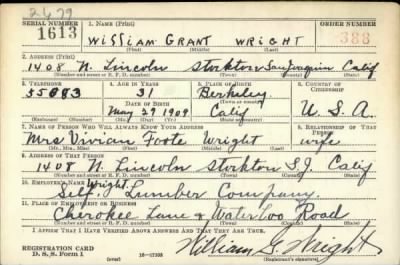 2-6-79
SERIAL NUMBER 1. NAME (Print) ORDER NUMBER
1613 WILLIAM GRANT WRIGHT 388
(First) (Middle) (Last)
2. ADDRESS (Print)
1408 N. Lincoln Stockton San Joaquin Calif
(Number and street or R. F. D. number) (Town) (County) (State)
3. TELEPHONE 4. AGE IN YEARS 5. PLACE OF BIRTH 6. COUNTRY OF CITIZENSHIP
35683 31 Berkeley
DATE OF BIRTH (Town or county)
May 29 1909 Calif U.S.A.
(Exchange) (Number) (Mo.) (Day) (Yr.) (State or country)
7. NAME OF PERSON WHO WILL ALWAYS KNOW YOUR ADDRESS 8. RELATIONSHIP OF THAT PERSON
Mrs Vivian Foote Wright wife
(Mr., Mrs., Miss) (First) (Middle) (Last)
9. ADDRESS OF THAT PERSON
1408 N. Lincoln Stockton S.J. Calif
(Number and street or R. F. D. number) (Town) (County) (State)
10. EMPLOYER'S NAME Wright
Self. Lumber Company.
11. PLACE OF EMPLOYMENT OR BUSINESS
Cherokee Lane & Waterloo Road
(Number and street or R. F. D. number) (Town) (County) (State)
I AFFIRM THAT I HAVE VERIFIED ABOVE ANSWERS AND THAT THEY ARE TRUE.
REGISTRATION CARD
D. S. S. Form 1 William G. Wright
(Registrant's signature)